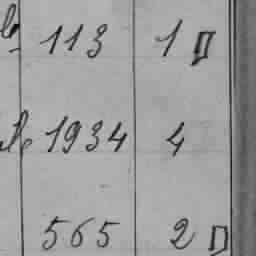 113 1
1934 4
565 2